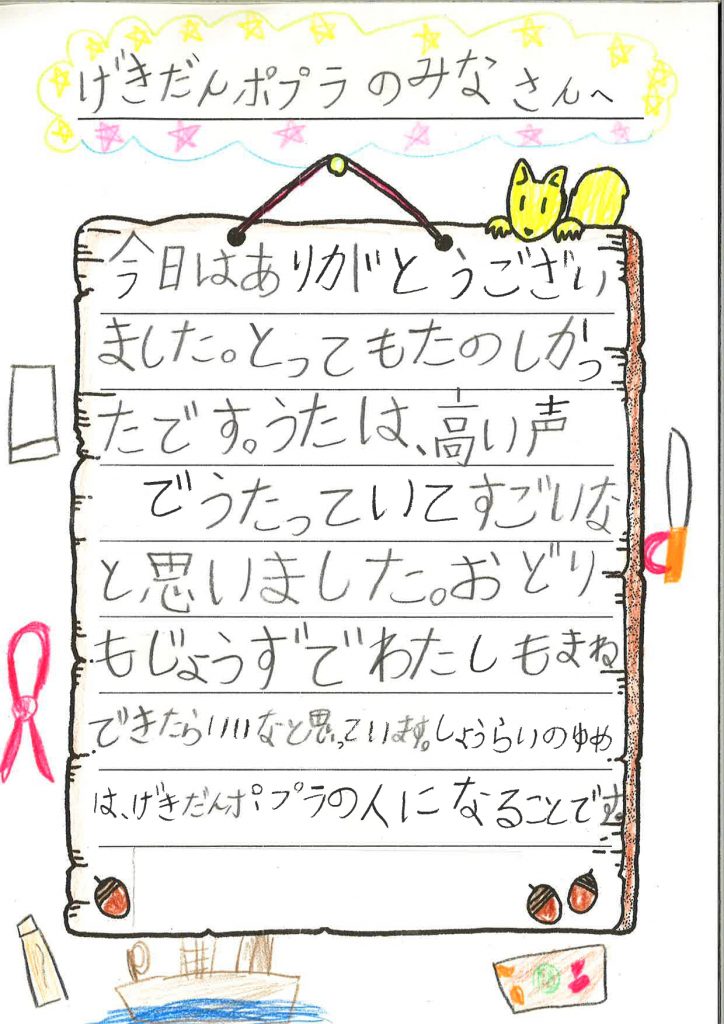 げきだんポプラのみなさんへ
今日はありがとうござい
ました。とってもたのしかっ
たです。うたは、高い声
でうたっていてすごいな
と思いました。おどり
もじょうずでわたしもまね
できたらいいなと思っています。しょうらいのゆめ
は、げきだんポプラの人になることです。